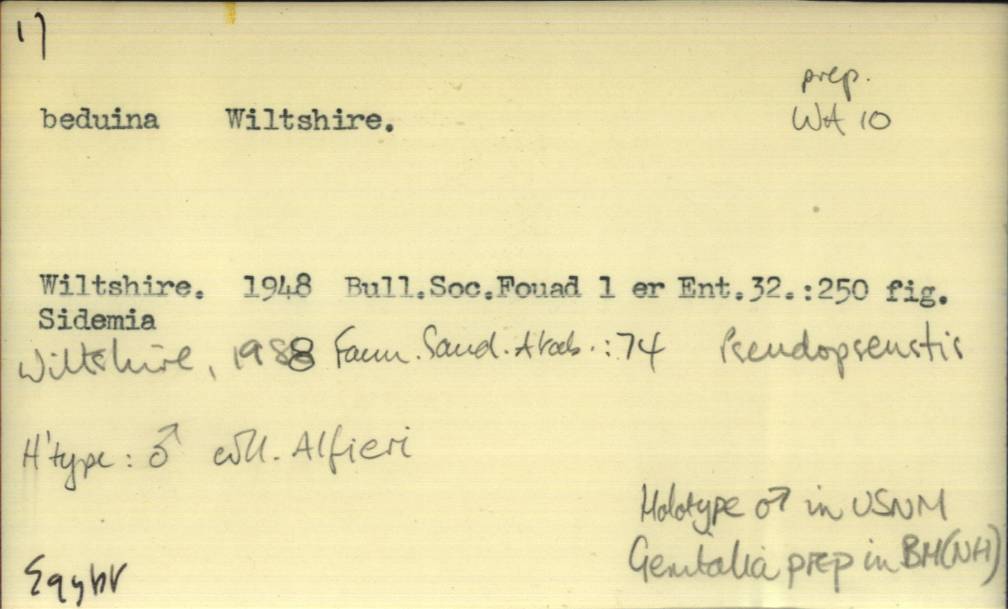 17
prep.
beduina Wiltshire. WA 10
Wiltshire. 1948 Bull.Soc.Fouad 1 er Ent.32.:250 fig.
Sidemia
Wiltshire, 1988 Faun. Saud. Arab. :74 Pseudopseustis
H'type: ♂ coll. Alfieri
Holotype ♂ in USNM
Genitalia prep in BM(NH)
Egypt